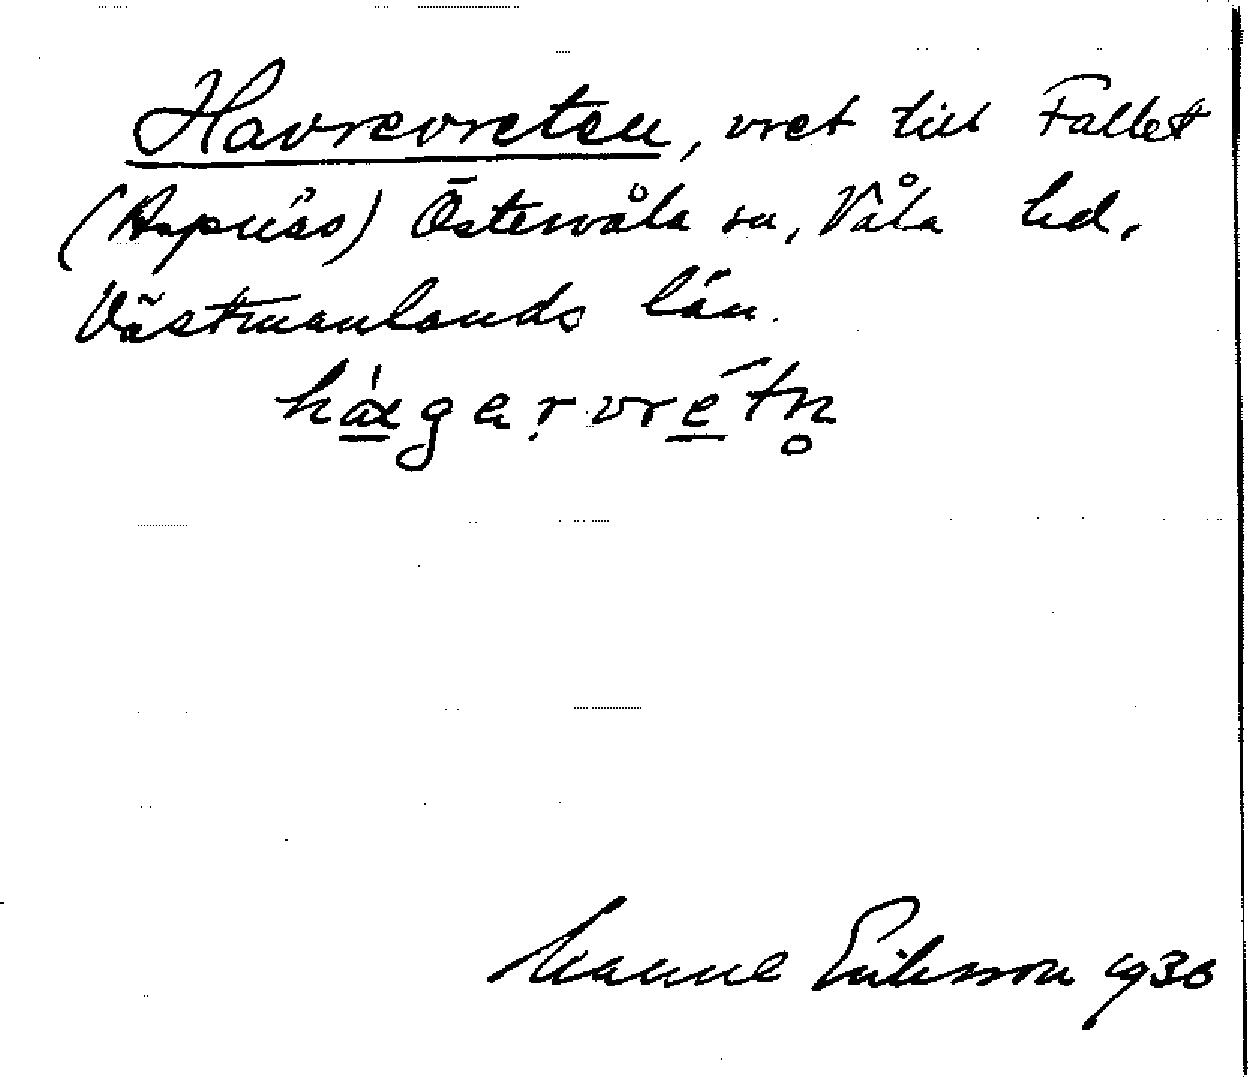 Havrevreten, vret till Fallet
(Aspnäs) Östervåla sn, Våla hd.
Västmanlands län.
Manne Eriksson 1936